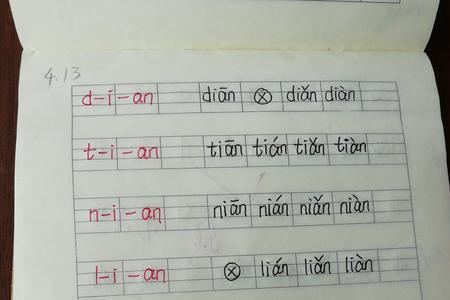 4.13
d-i-an diān ⓧ diǎn diàn
t-i-an tiān tián tiǎn tiàn
n-i-an niān nián niǎn niàn
l-i-an ⓧ lián liǎn liàn